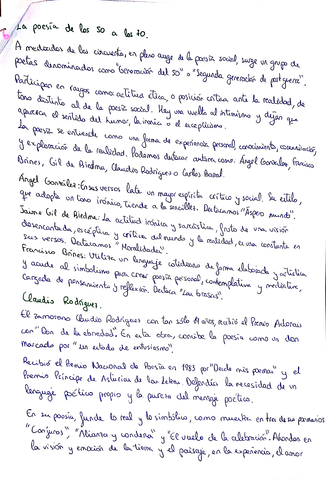 La poesía de los 50 a los 70.
A mediados de los cincuenta, en pleno auge de la poesía social, surge un grupo de
poetas denominados como "Generación del 50" o "Segunda generación de postguerra".
Participan en rasgos como actitud ética, o posición crítica ante la realidad, de
tono distinto al de la poesía social. Hay una vuelta al intimismo y dejan que
aparezca el sentido del humor, la ironía o el escepticismo.
La poesía se entiende como una forma de experiencia personal, conocimiento, comunicación,
y exploración de la realidad. Podemos destacar autores como: Ángel González, Francisco
Brines, Gil de Biedma, Claudio Rodríguez o Carlos Barral.
Ángel González: En sus versos late un mayor espíritu crítico y social. Su estilo,
que adopta un tono irónico, tiende a lo sencillo. Destacamos "Áspero mundo".
Jaime Gil de Biedma: La actitud irónica y sarcástica, fruto de una visión
desencantada, escéptica y crítica del mundo y la realidad, es una constante en
sus versos. Destacamos "Moralidades".
Francisco Brines: Utiliza un lenguaje cotidiano de forma elaborada y artística
y acude al simbolismo para crear poesía personal, contemplativa y meditativa,
cargada de pensamiento y reflexión. Destaca "Las brasas".
Claudio Rodríguez.
El zamorano Claudio Rodríguez con tan sólo 19 años, recibió el Premio Adonais
con "Don de la ebriedad". En esta obra, concibe la poesía como un don
marcado por "un estado de entusiasmo".
Recibió el Premio Nacional de Poesía en 1983 por "Desde mis poemas" y el
Premio Príncipe de Asturias de las Letras. Defendía la necesidad de un
lenguaje poético propio y la pureza del mensaje poético.
En su poesía, funde lo real y lo simbólico, como muestra en tres de sus poemarios
"Conjuros", "Alianza y condena" y "El vuelo de la celebración". Ahondas en
la visión y emoción de la tierra y el paisaje, en la experiencia, el amor